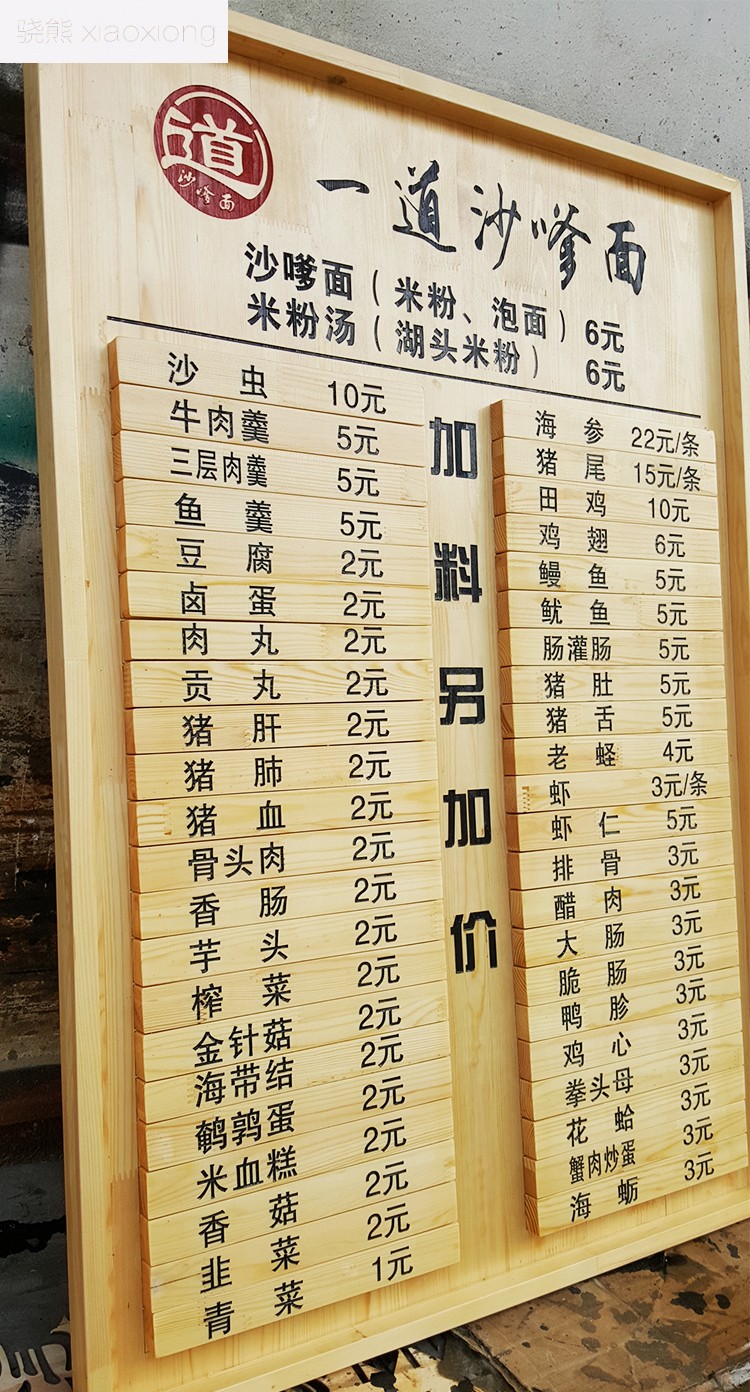 骁熊 xiaoxiong
道
沙嗲面
一道沙嗲面
沙嗲面（米粉、泡面）6元
米粉汤（湖头米粉） 6元
沙虫 10元
牛肉羹 5元
三层肉羹 5元
鱼羹 5元
豆腐 2元
卤蛋 2元
肉丸 2元
贡丸 2元
猪肝 2元
猪肺 2元
猪血 2元
骨头肉 2元
香肠 2元
芋头 2元
榨菜 2元
金针菇 2元
海带结 2元
鹌鹑蛋 2元
米血糕 2元
香菇 2元
韭菜 2元
青菜 1元
加料另加价
海参 22元/条
猪尾 15元/条
田鸡 10元
鸡翅 6元
鳗鱼 5元
鱿鱼 5元
肠灌肠 5元
猪肚 5元
猪舌 5元
老蛏 4元
虾 3元/条
虾仁 5元
排骨 3元
醋肉 3元
大肠 3元
脆肠 3元
鸭胗 3元
鸡心 3元
拳头母 3元
花蛤 3元
蟹肉炒蛋 3元
海蛎 3元